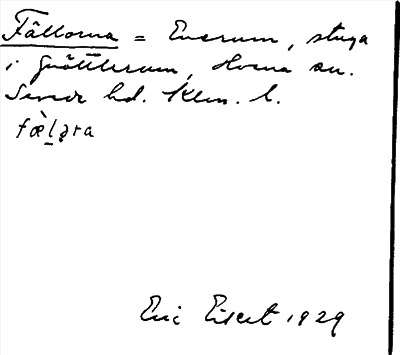 Fällorna = Enerum, stuga
i Gnöttlerum, Horna sn.
Sevede hd. Klm. l.
fæ̀l̠əra
Eric Elert 1929